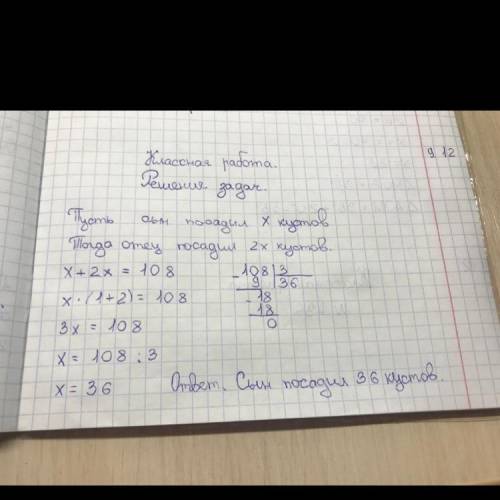 9 12
Классная работа.
Решения задач.
Пусть сын посадил x кустов
Тогда отец посадил 2x кустов.
x + 2x = 108
x · (1+2) = 108
3x = 108
x = 108 : 3
x = 36
- 108 | 3
9 | 36
- 18
18
0
Ответ. Сын посадил 36 кустов.